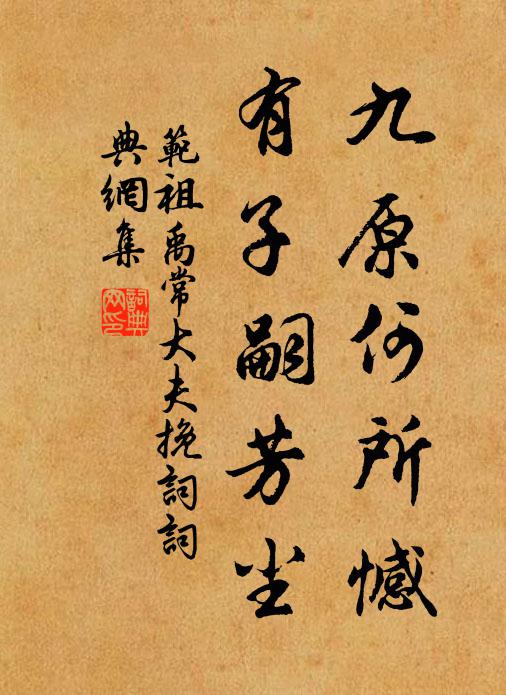 九原何所憾
有子嗣芳尘
範祖禹常大夫挽詞詞
典網集
詞典網印